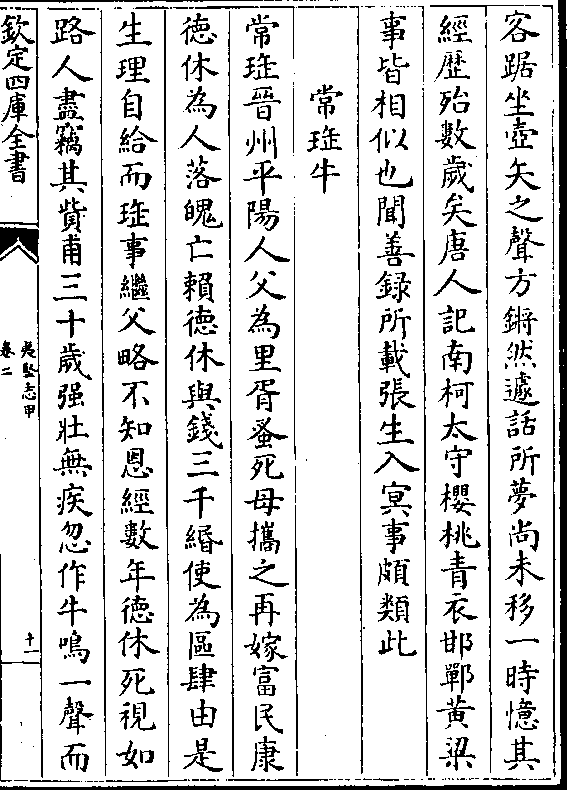 容踞坐壺矢之聲方鏘然遽話所夢尚未移一時憶其
經歴殆數歳矣唐人記南柯太守櫻桃青衣邯鄲黄粱
事皆相似也聞善録所載張生入冥事頗類此
常瑅牛
常瑅晉州平陽人父為里胥蚤死母攜之再嫁富民康
徳休為人落魄亡賴徳休與錢三千緡使為區肆由是
生理自給而瑅事繼父略不知恩經數年徳休死視如
路人盡竊其貲甫三十歳强壯無疾忽作牛鳴一聲而
欽定四庫全書
夷堅志甲
卷二
十一